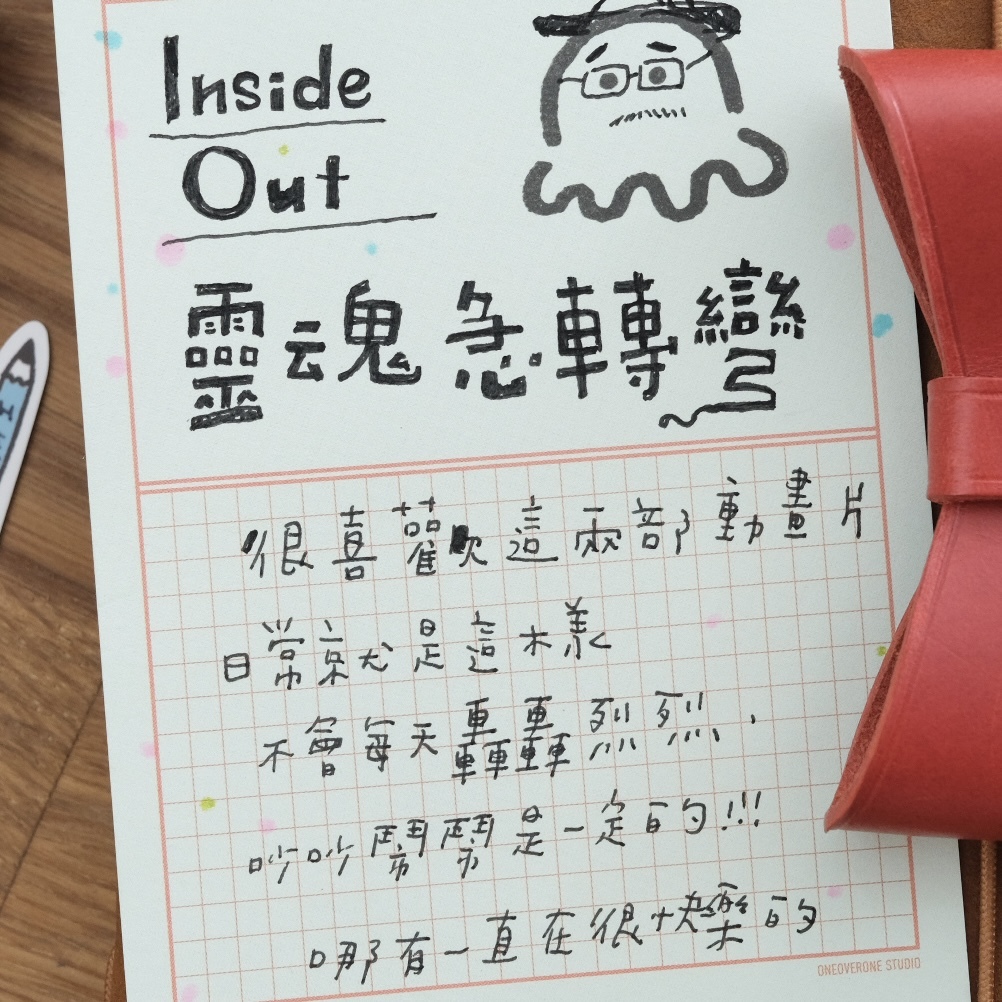 Inside
Out
靈魂急轉彎
很喜歡這兩部動畫片
日常就是這木樣
不會每天轟轟烈烈,
吵吵鬧鬧是一定的!!!
哪有一直在很快樂的
ONEOVERONE STUDIO